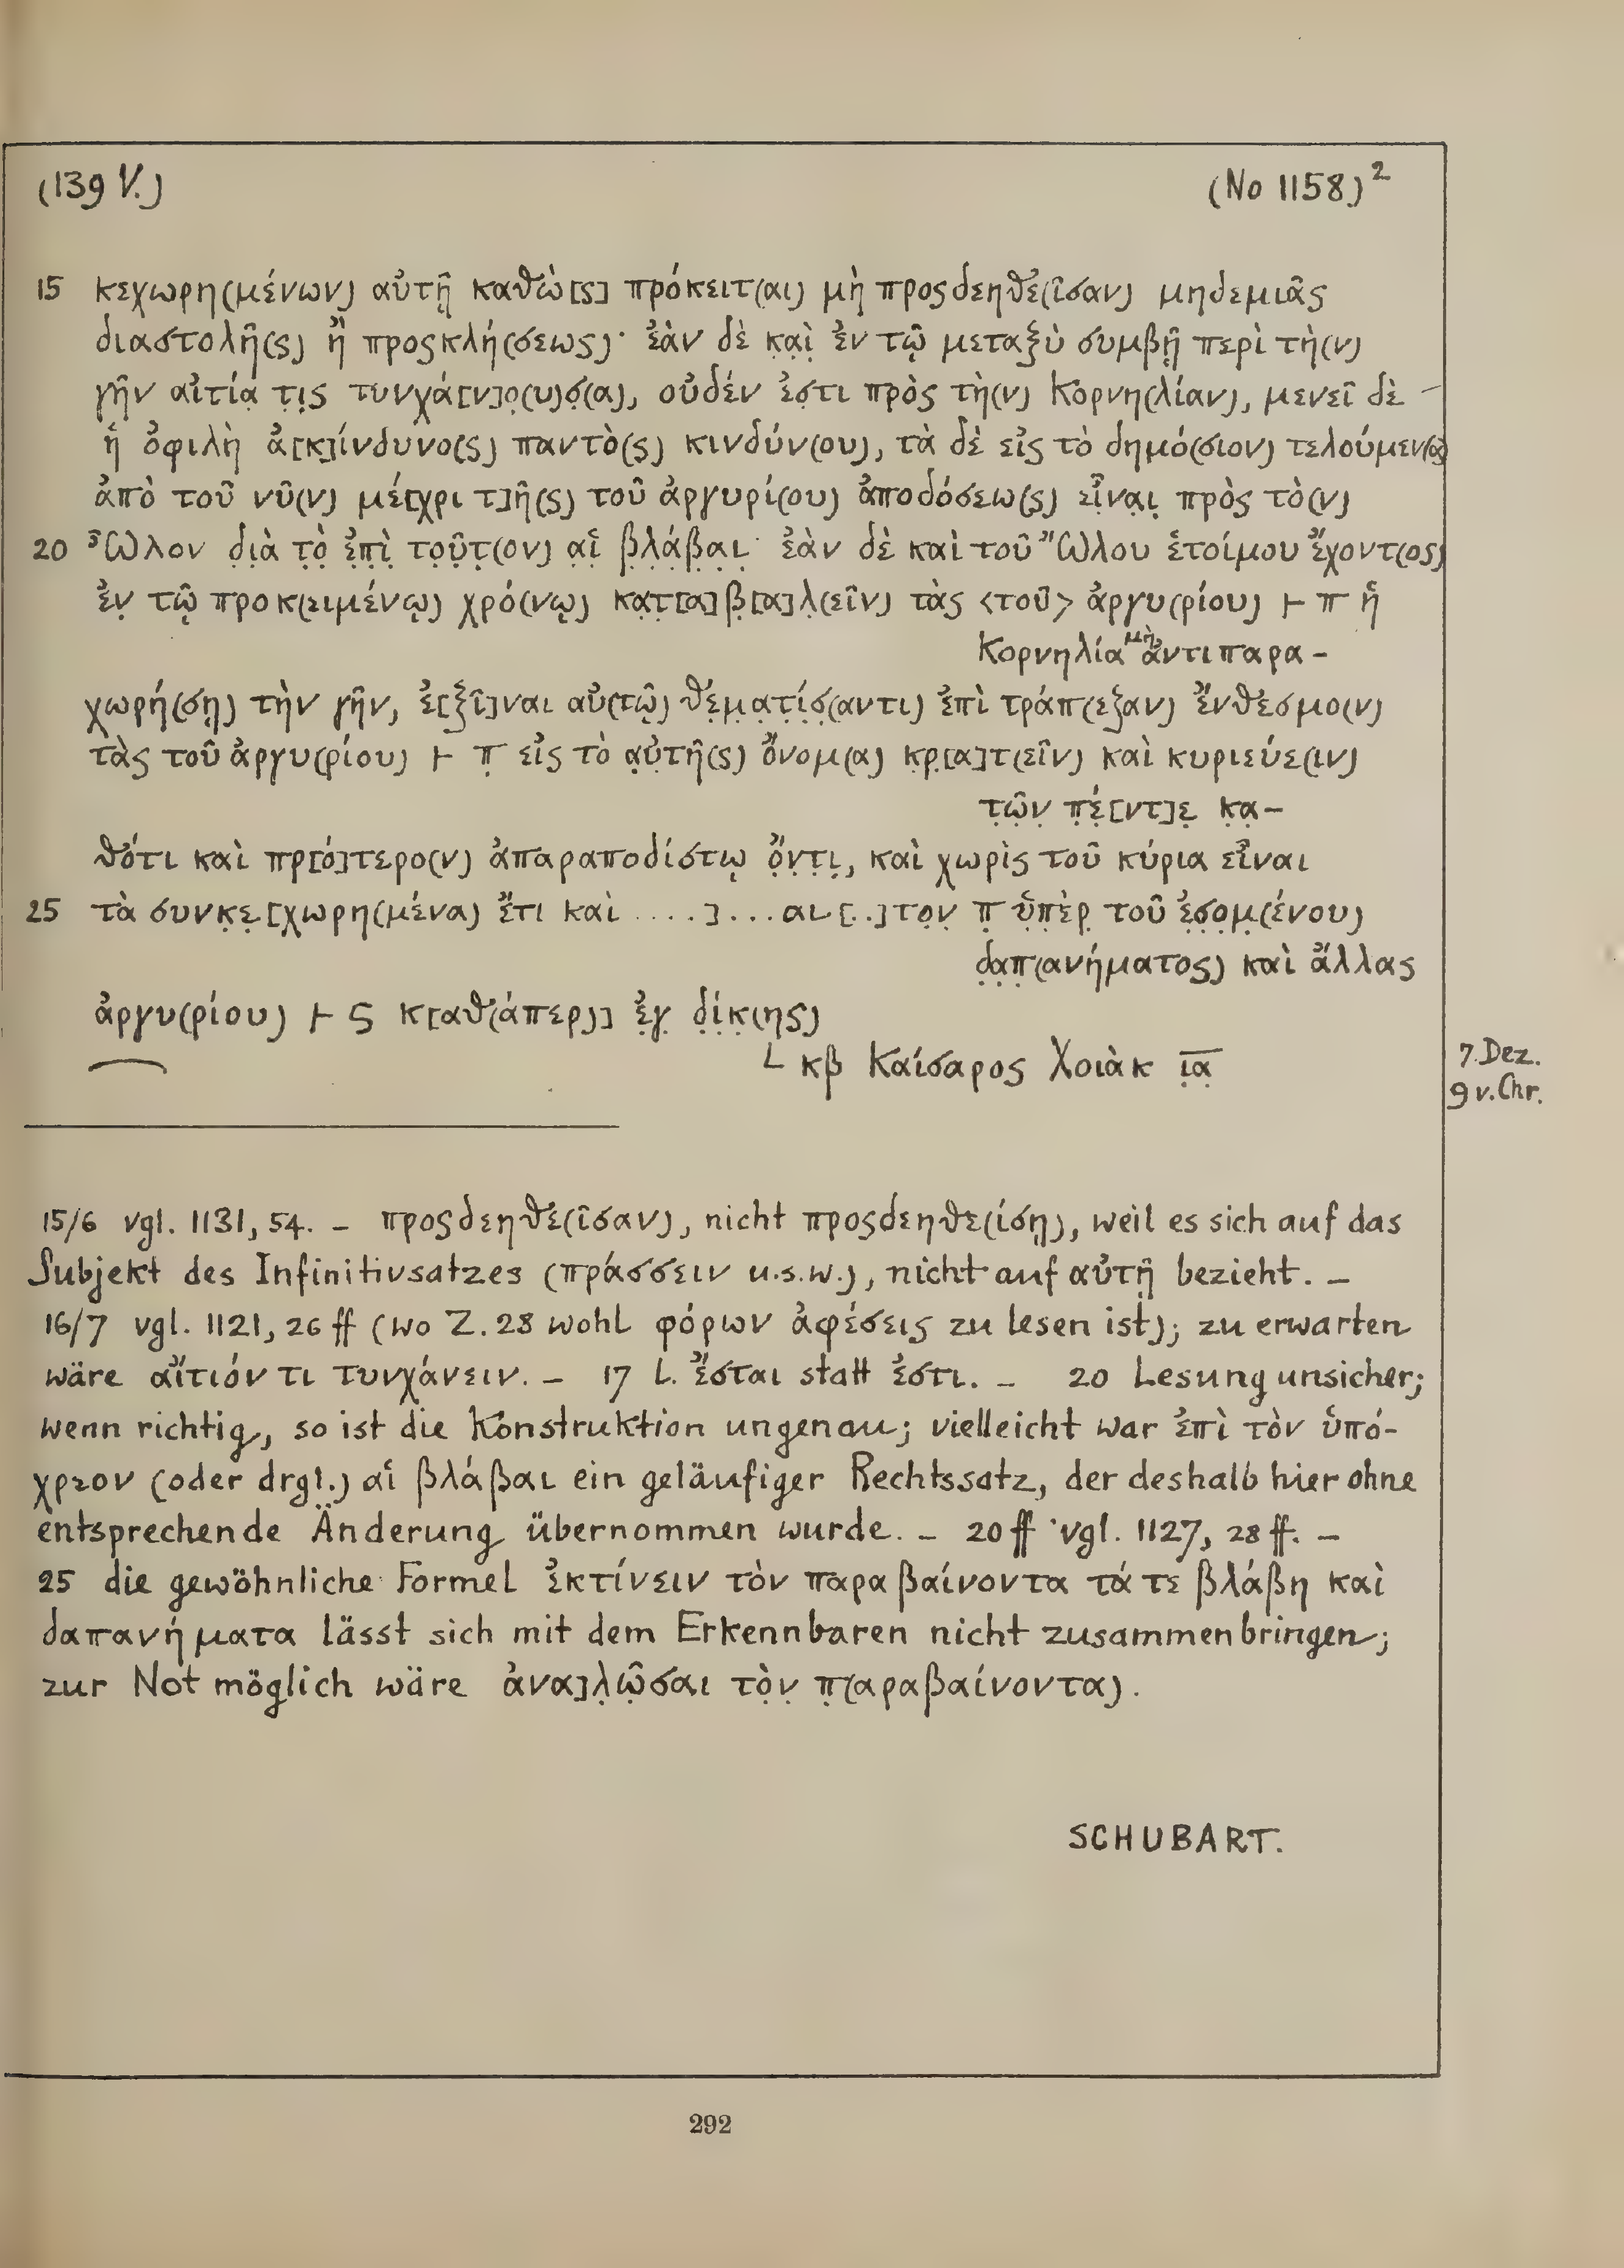 (139 V.) (No 1158)²
15 κεχωρη(μένων) αὐτῇ καθὼ[ς] πρόκειτ(αι) μὴ προςδεηθε(ῖσαν) μηδεμιᾶς
διαστολῆ(ς) ἢ προςκλή(σεως)· ἐὰν δὲ κ̣α̣ὶ̣ ἐν τῷ μεταξὺ συμβῇ περὶ τὴ(ν)
γῆν αἰτία̣ τ̣ι̣ς τυνχά[ν]ο̣(υ)σ̣(α), οὐδέν ἐσ̣τι πρὸς τὴ(ν) Κορνη(λίαν), μενεῖ δὲ
ἡ ὀφιλὴ ἀ[κ]ίνδυνο(ς) παντὸ(ς) κινδύν(ου), τὰ δὲ εἰς τὸ δημό(σιον) τελούμεν(α)
ἀπὸ τοῦ νῦ(ν) μέ[χρι τ]ῆ(ς) τοῦ ἀργυρί(ου) ἀποδόσεω(ς) εἶ̣ν̣α̣ι̣ πρὸς τὸ(ν)
20 Ὦλον δ̣ι̣ὰ τ̣ὸ̣ ἐ̣π̣ὶ̣ τ̣ο̣ῦ̣τ̣(ον) α̣ἱ̣ β̣λ̣ά̣β̣α̣ι̣· ἐὰν δὲ καὶ τοῦ Ὤλου ἑτοίμου ἔχοντ(ος)
ἐν̣ τῷ προκ(ειμένῳ) χρό(νῳ) κ̣α̣τ̣[α]β̣[α]λ̣(εῖν) τὰς <τοῦ> ἀργυ(ρίου) ⊢ π ἡ
Κορνηλία μὴ ἀντιπαρα-
χωρή(σῃ) τὴν γῆν, ἐ[ξῖ]ναι αὐ(τῷ) θ̣ε̣μ̣α̣τ̣ί̣σ̣(αντι) ἐπὶ τράπ(εζαν) ἔνθεσμο(ν)
τὰς τοῦ ἀργυ(ρίου) ⊢ π̣ εἰς τὸ α̣ὐ̣τῆ(ς) ὄνομ(α) κ̣ρ̣[α]τ(εῖν) καὶ κυριεύε(ιν)
τ̣ῶ̣ν̣ π̣έ̣[ντ]ε̣ κ̣α̣-
θότι καὶ πρ[ό]τερο(ν) ἀπαραποδίστῳ ὄ̣ν̣τ̣ι̣, καὶ χωρὶς τοῦ κύρια εἶναι
25 τὰ συνκ̣ε̣[χωρη(μένα) ἔτι καὶ ....]...αι[..]τ̣ο̣ν̣ π̣ ὑ̣π̣ὲ̣ρ̣ τοῦ ἐ̣σ̣ο̣μ̣(ένου)
δ̣α̣π̣(ανήματος) καὶ ἄλλας
ἀργυ(ρίου) ⊢ ϛ κ[αθ(άπερ)] ἐ̣γ̣ δ̣ί̣κ̣(ης)
L κβ Καίσαρος Χοιὰκ ι̣α̣
7. Dez.
9 v. Chr.
15/6 vgl. 1131, 54. – προςδεηθε(ῖσαν), nicht προςδεηθε(ίσῃ), weil es sich auf das
Subjekt des Infinitivsatzes (πράσσειν u.s.w.), nicht auf αὐτῇ bezieht. –
16/7 vgl. 1121, 26 ff (wo Z. 28 wohl φόρων ἀφέσεις zu lesen ist); zu erwarten
wäre αἴτιόν τι τυνχάνειν. – 17 l. ἔσται statt ἐστι. – 20 Lesung unsicher;
wenn richtig, so ist die Konstruktion ungenau; vielleicht war ἐπὶ τὸν ὑπό-
χρεον (oder drgl.) αἱ βλάβαι ein geläufiger Rechtssatz, der deshalb hier ohne
entsprechende Änderung übernommen wurde. – 20 ff vgl. 1127, 28 ff. –
25 die gewöhnliche Formel ἐκτίνειν τὸν παραβαίνοντα τά τε βλάβη καὶ
δαπανήματα lässt sich mit dem Erkennbaren nicht zusammenbringen;
zur Not möglich wäre ἀνα]λ̣ῶ̣σαι τὸ̣ν̣ π̣(αραβαίνοντα).
SCHUBART.
292